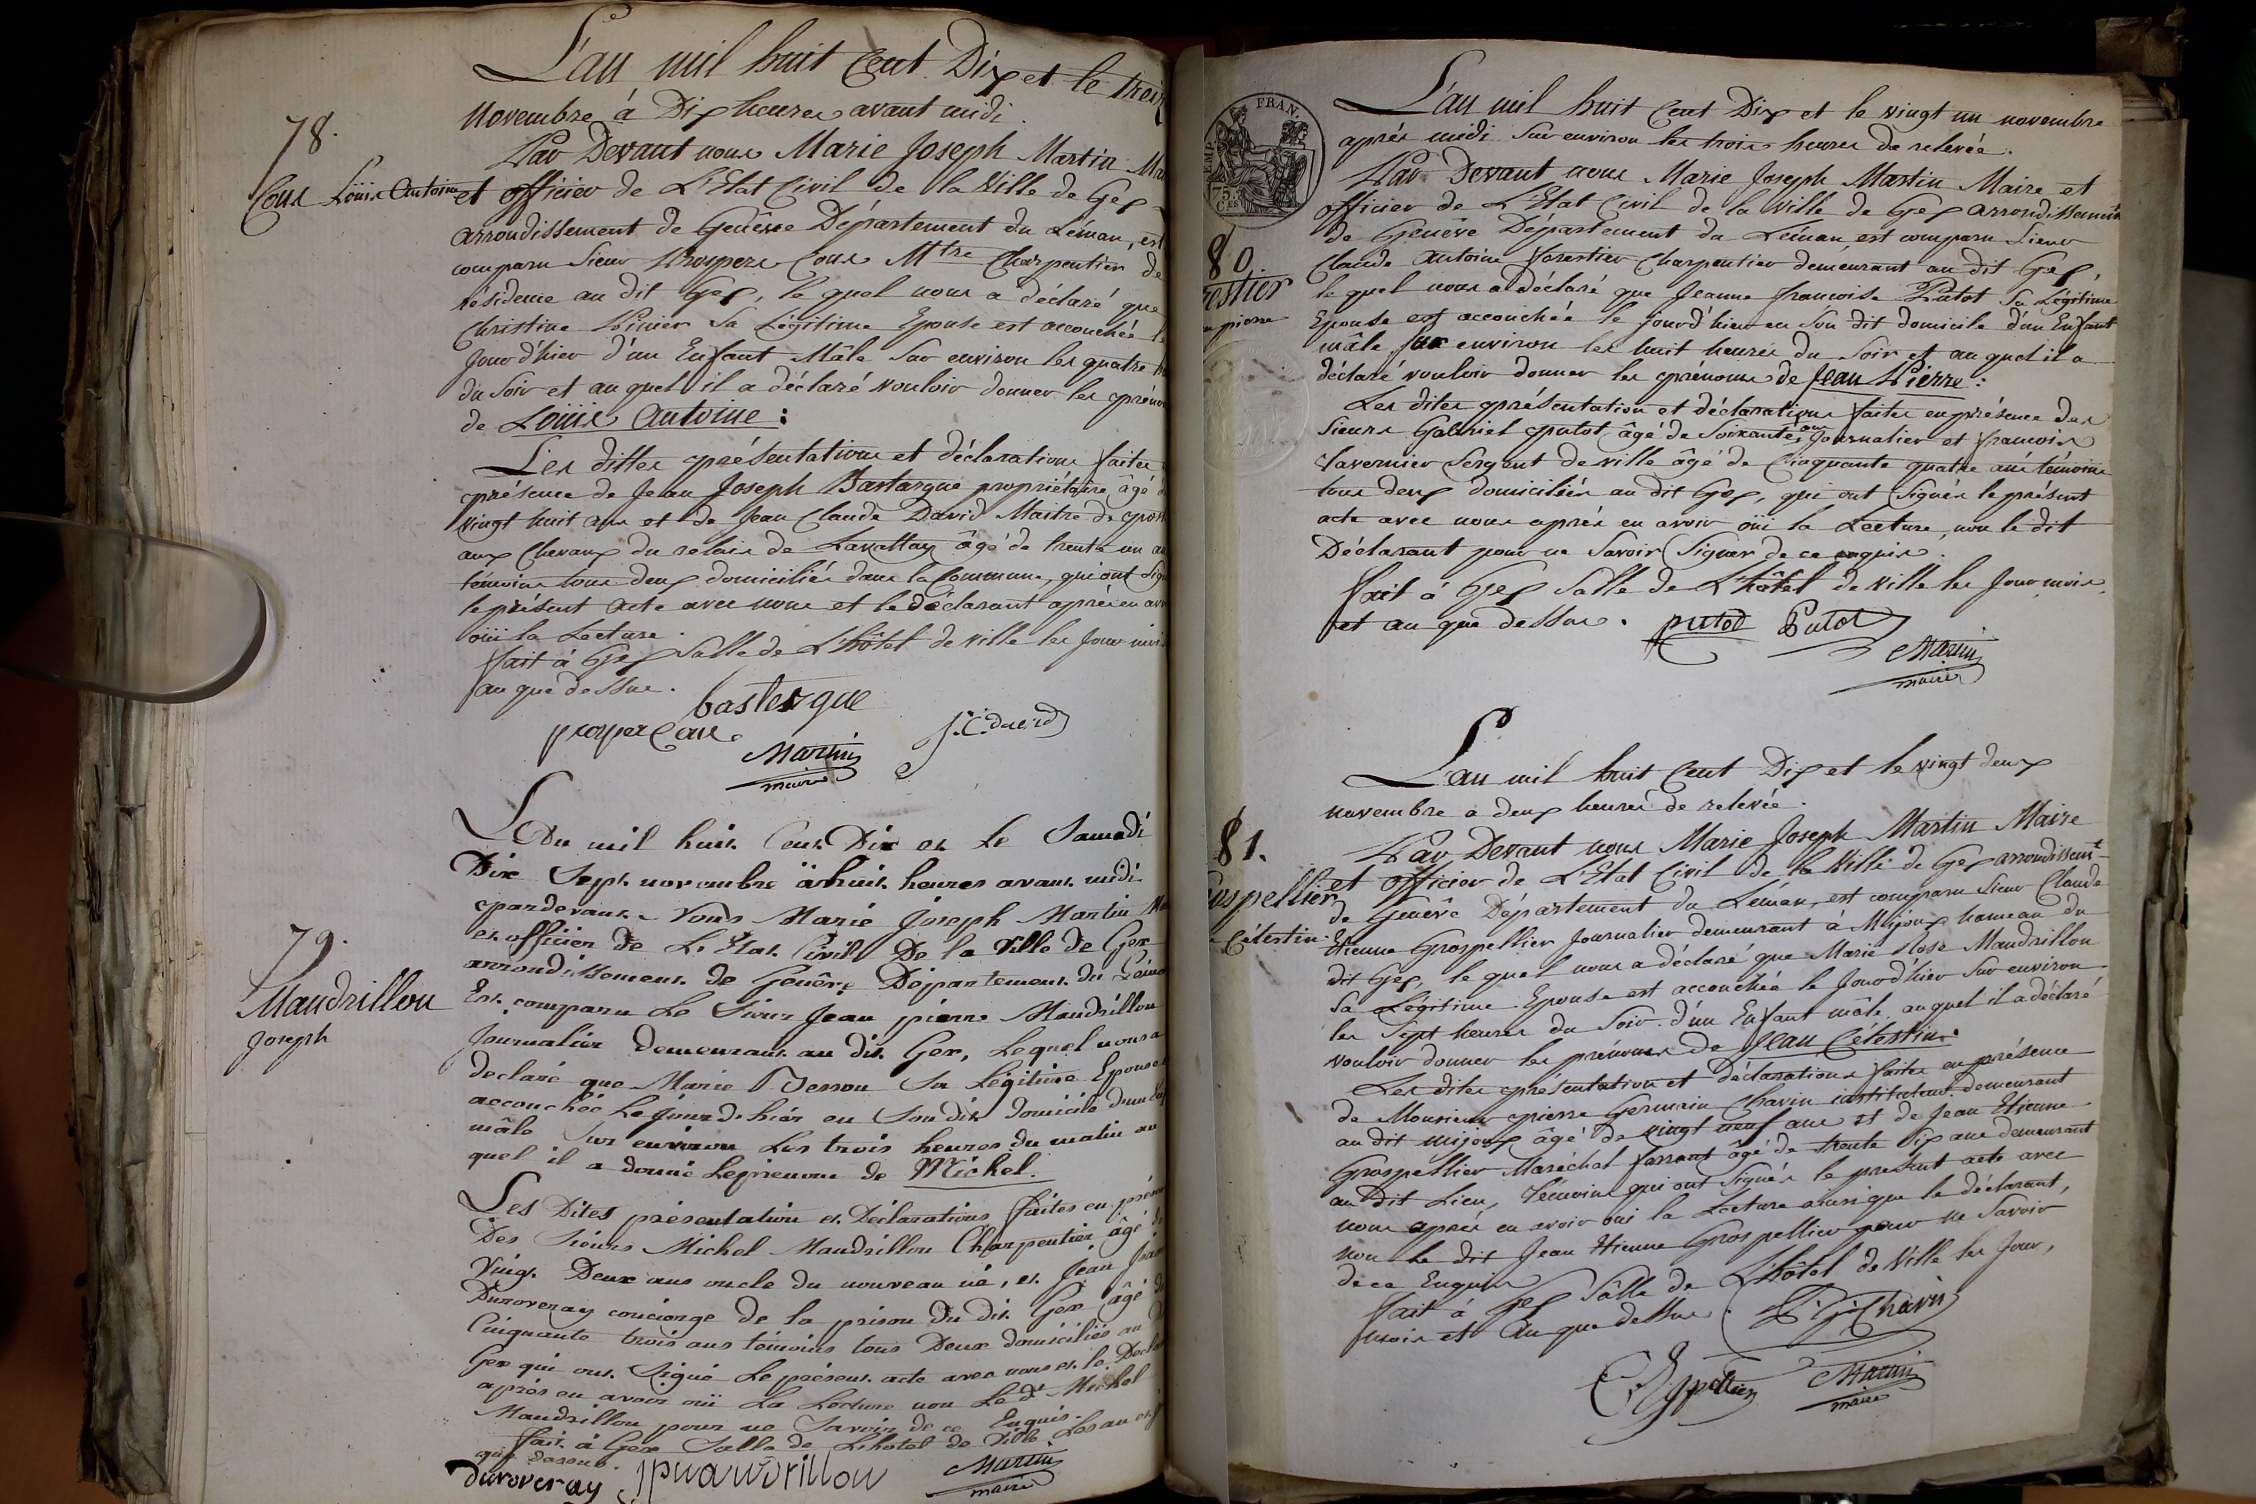 L'an mil huit Cent Dix et le treize
Novembre à Dix heures avant midi.
78.
Par Devant nous Marie Joseph Martin
Cons Loüis Antoine
et officier de L'Etat Civil de la Ville de Gex
arrondissement de Genêve Département du Léman, est
comparu Sieur Prospere Cons Mtre Charpentier de
résidence au dit Gex, le quel nous a déclaré que
Christine Sa Légitime Epouse est accouchée
Jourd'hier d'un Enfant Mâle Sur environ les quatre
du Soir et au quel il a déclaré vouloir donner les
de Loüis Antoine :
Les dittes présentations et déclarations faites
présence de Jean Joseph propriétaire âgé
vingt huit ans et de Jean Claude David Maitre de
aux Chevaux du relais de Lavattay âgé de trente un
témoins tous deux domiciliés dans la Commune, qui ont
le présent acte avec nous et le déclarant après en
oüi la Lecture.
fait à Gex Salle de L'hôtel de Ville les Jour
an que dessus.
basterque
prosper Cons
J. C. david
Martin
maire
L'an mil huit Cent Dix et le Samedi
Dix Sept novembre à huit heures avant midi
pardevant Nous Marie Joseph Martin
et officier de L'Etat Civil De la Ville de Gex
79.
arrondissement de Genêve Département du
Maudrillon
Joseph
Est comparu Le Sieur Jean pierre Maudrillon
Journalier demeurant au dit Gex, Lequel nous a
declaré que Marie Sa Légitime Epouse
accouchée Le jour de hier en Son dit domicile d'un
mâle Sur environ Les trois heures du matin au
quel il a donné Le prenom de Michel.
Les Dites présentation et Déclarations faites en
Des Sieurs Michel Maudrillon Charpentier âgé
Vingt Deux ans oncle du nouveau né, et Jean
Duroveray concierge de la prison du dit Gex âgé
Cinquante trois ans témoins tous Deux domiciliés au
Gex qui ont Signé Le présent acte avec nous et le
après en avoir oüi La Lecture non Le dt Michel
Maudrillon pour ne Savoir de ce Enquis.
fait à Gex Salle de L'hotel de Ville Les an et
que dessus.
duroveray jpmaudrillon Martin
maire
EMP. FRAN.
75. CES
L'an mil huit Cent Dix et le vingt un novembre
après midi Sur environ les trois heures de relevée.
Par Devant nous Marie Joseph Martin Maire et
officier de L'Etat Civil de la Ville de Gex arrondissement
de Genêve Département du Léman est comparu Sieur
80.
Claude Antoine forestier Charpentier demeurant au dit Gex,
restier
le quel nous a déclaré que Jeanne francoise Putot Sa Légitime
pierre
Epouse est accouchée le jourd'hier en Son dit domicile d'un Enfant
mâle Sur environ les huit heures du Soir et au quel il a
déclaré vouloir donner les prénoms de Jean Pierre :
Les dites présentation et déclarations faites en présence des
Sieurs Gabriel putot âgé de Soixante ans Journalier et francois
tavernier Sergent de ville âgé de Cinquante quatre ans témoins
tous deux domiciliés au dit Gex, qui ont Signés le présent
acte avec nous après en avoir oüi la Lecture, non le dit
Déclarant pour ne Savoir Signer de ce enquis.
fait à Gex Salle de L'hôtel de Ville les Jour mois
et an que dessus. putod Putod
Martin
maire
L'an mil huit Cent Dix et le vingt deux
novembre a deux heures de relevée.
81.
Par Devant nous Marie Joseph Martin Maire
et officier de L'Etat Civil de la Ville de Gex arrondissemt
ospellier
de Genêve Département du Léman, est comparu Sieur Claude
Célestin
Etienne Grospellier Journalier demeurant à Mijoux hameau du
dit Gex, le quel nous a déclaré que Marie Rose Maudrillon
Sa Légitime Epouse est accouchée le Jourd'hier Sur environ
les Sept heures du Soir d'un Enfant mâle auquel il a déclaré
vouloir donner les prénoms de Jean Célestin.
Les dites présentation et déclarations faites en présence
de Monsieur pierre Germain Chavin instituteur demeurant
au dit mijoux âgé de vingt neuf ans et de Jean Etienne
Grospellier Maréchal ferrant âgé de trente Six ans demeurant
au dit Lieu, témoins qui ont Signés le présent acte avec
nous après en avoir oui la Lecture ainsi que le déclarant,
non Le dit Jean Etienne Grospellier pour ne Savoir
de ce Enquis
fait à Gex Salle de L'hôtel de Ville les Jour,
mois et an que dessus. P. G. Chavin
Martin
maire